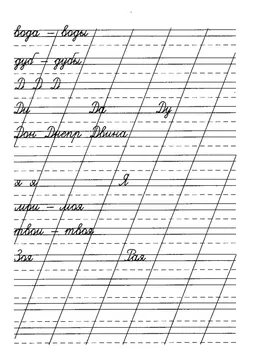 вода – воды
дуб – дубы
D D D
Ди Да Ду
Дон Днепр Двина
я я Я
мои – моя
твои – твоя
Зоя Рая